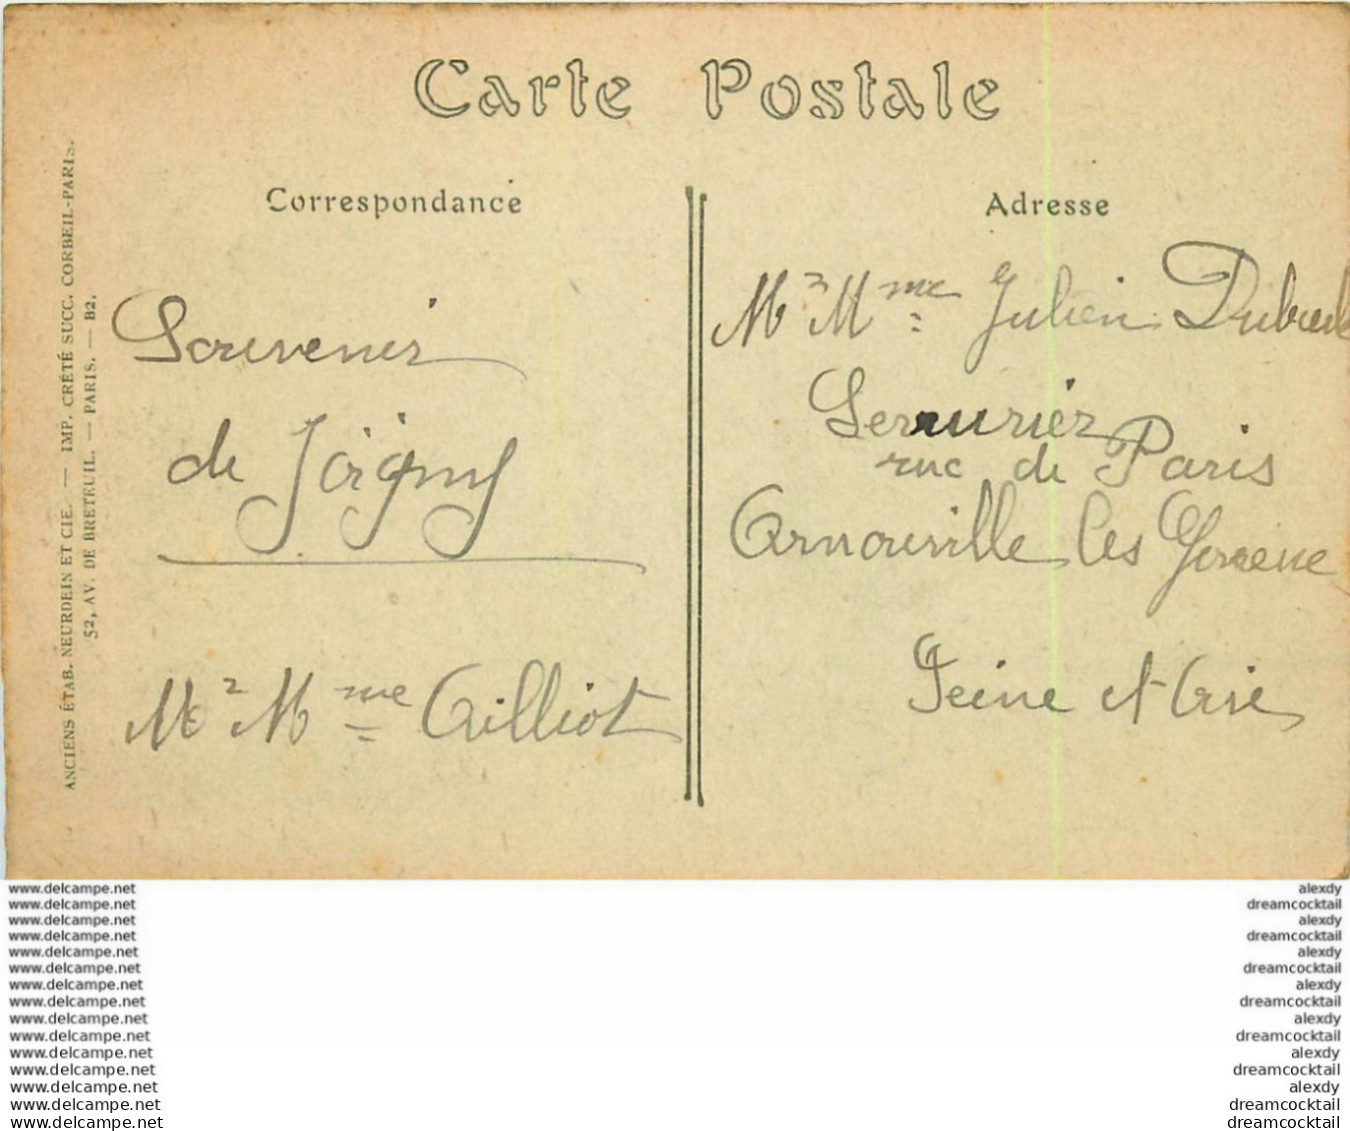 Carte Postale
Correspondance
Souvenir
de Joigny
Mr Mme Cilliot
Adresse
Mr Mme Julien
Serrurier
rue de Paris
Arnouville les Gonesse
Seine et Oise
ANCIENS ÉTAB. NEURDEIN ET CIE. — IMP. CRÉTÉ SUCC. CORBEIL-PARIS.
52, AV. DE BRETEUIL. — PARIS. — B2.
www.delcampe.net
www.delcampe.net
www.delcampe.net
www.delcampe.net
www.delcampe.net
www.delcampe.net
www.delcampe.net
www.delcampe.net
www.delcampe.net
www.delcampe.net
www.delcampe.net
www.delcampe.net
www.delcampe.net
www.delcampe.net
www.delcampe.net
alexdy
dreamcocktail
alexdy
dreamcocktail
alexdy
dreamcocktail
alexdy
dreamcocktail
alexdy
dreamcocktail
alexdy
dreamcocktail
alexdy
dreamcocktail
dreamcocktail